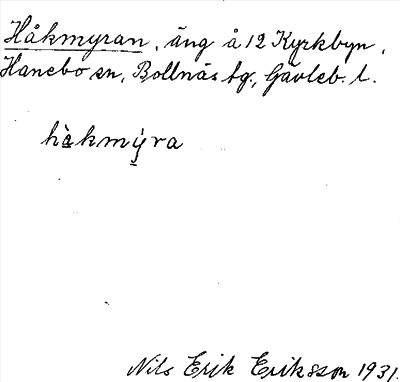 Håkmyran, äng å 12 Kyrkbyn,
Hanebo sn, Bollnäs tg., Gävleb. l.
hà̱kmý̱ra
Nils Erik Eriksson 1931.